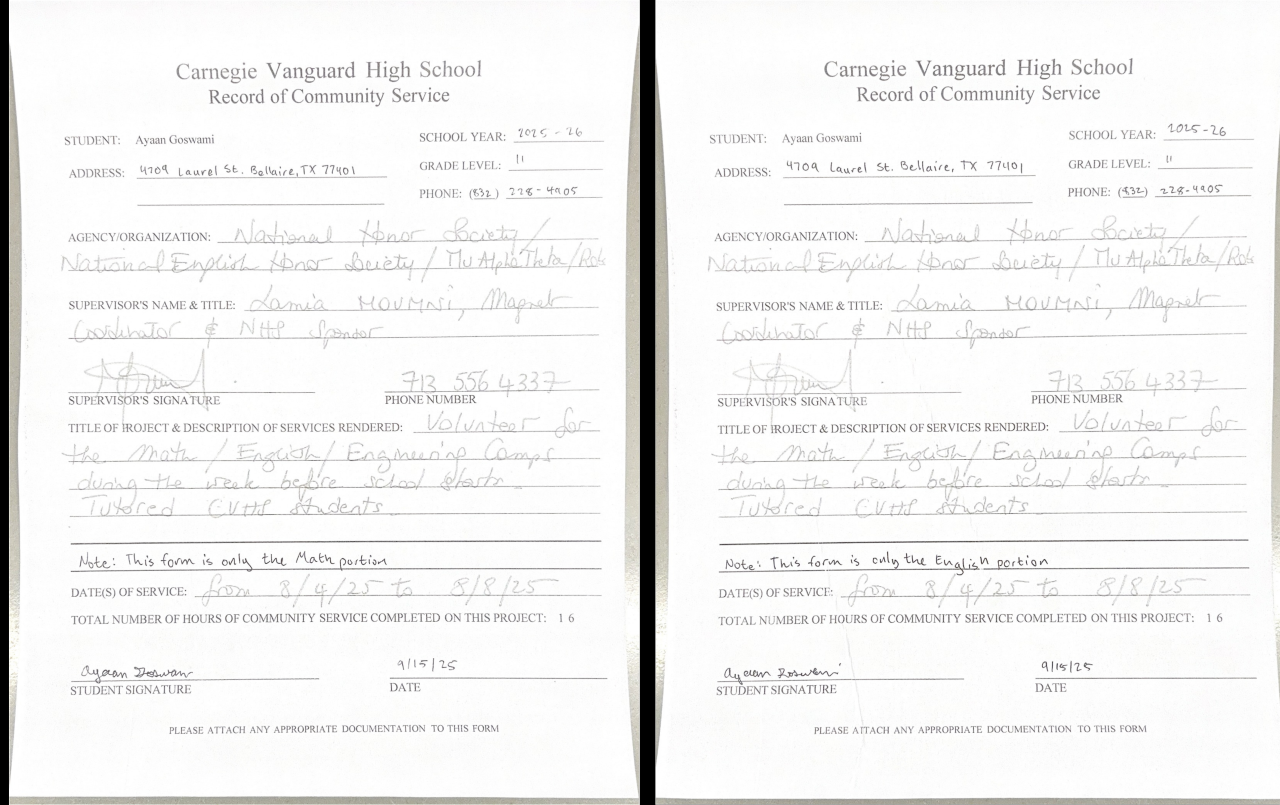 Carnegie Vanguard High School
Record of Community Service
STUDENT: Ayaan Goswami
SCHOOL YEAR: 2025-26
ADDRESS: 4709 Laurel St. Bellaire, TX 77401
GRADE LEVEL: 11
PHONE: (832) 228-4905
AGENCY/ORGANIZATION: National Honor Society/
National English Honor Society / Mu Alpha Theta/
SUPERVISOR'S NAME & TITLE: Lamia MOUMNI, Magnet
Coordinator & NHS Sponsor
713 556 4337
SUPERVISOR'S SIGNATURE
PHONE NUMBER
TITLE OF PROJECT & DESCRIPTION OF SERVICES RENDERED: Volunteer for
the Math / English / Engineering Camps
during the week before school starts.
Tutored CVHS students.
Note: This form is only the Math portion
DATE(S) OF SERVICE: from 8/4/25 to 8/8/25
TOTAL NUMBER OF HOURS OF COMMUNITY SERVICE COMPLETED ON THIS PROJECT: 16
Ayaan Goswami
9/15/25
STUDENT SIGNATURE
DATE
PLEASE ATTACH ANY APPROPRIATE DOCUMENTATION TO THIS FORM
Carnegie Vanguard High School
Record of Community Service
STUDENT: Ayaan Goswami
SCHOOL YEAR: 2025-26
ADDRESS: 4709 Laurel St. Bellaire, TX 77401
GRADE LEVEL: 11
PHONE: (832) 228-4905
AGENCY/ORGANIZATION: National Honor Society/
National English Honor Society / Mu Alpha Theta/
SUPERVISOR'S NAME & TITLE: Lamia MOUMNI, Magnet
Coordinator & NHS Sponsor
713 556 4337
SUPERVISOR'S SIGNATURE
PHONE NUMBER
TITLE OF PROJECT & DESCRIPTION OF SERVICES RENDERED: Volunteer for
the Math / English / Engineering Camps
during the week before school starts.
Tutored CVHS students.
Note: This form is only the English portion
DATE(S) OF SERVICE: from 8/4/25 to 8/8/25
TOTAL NUMBER OF HOURS OF COMMUNITY SERVICE COMPLETED ON THIS PROJECT: 16
Ayaan Goswami
9/15/25
STUDENT SIGNATURE
DATE
PLEASE ATTACH ANY APPROPRIATE DOCUMENTATION TO THIS FORM